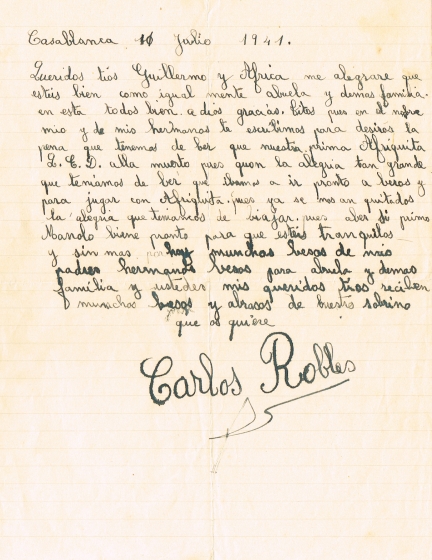 Casablanca 16 Julio 1941.
Queridos tiós Guillermo y Africa me alegrare que
esteis bien como igual mente abuela y demas familia.
en esta todos bien. a dios gracias. Titos pues en el nombre
mio y de mio hermanos te escribimos para desiros la
pena que tenemos de ber que nuestra prima Afriquita
Q.E.D. alla muerto pues quon la alegria tan grande
que teniamos de ber que ibamos a ir pronto a beros y
para jugar con Afriquita, pues ya se nos an quitados
la alegria que teniamos de biajar, pues aber si primo
Manolo biene pronto para que esteis tranquilos
y sin mas por hoy munchos besos de mis
padres hermanos besos para abuela y demas
familia y ustedes mis queridos tios reciben
munchos besos y abrasos de buestro sobrino
que os quiere
Carlos Robles